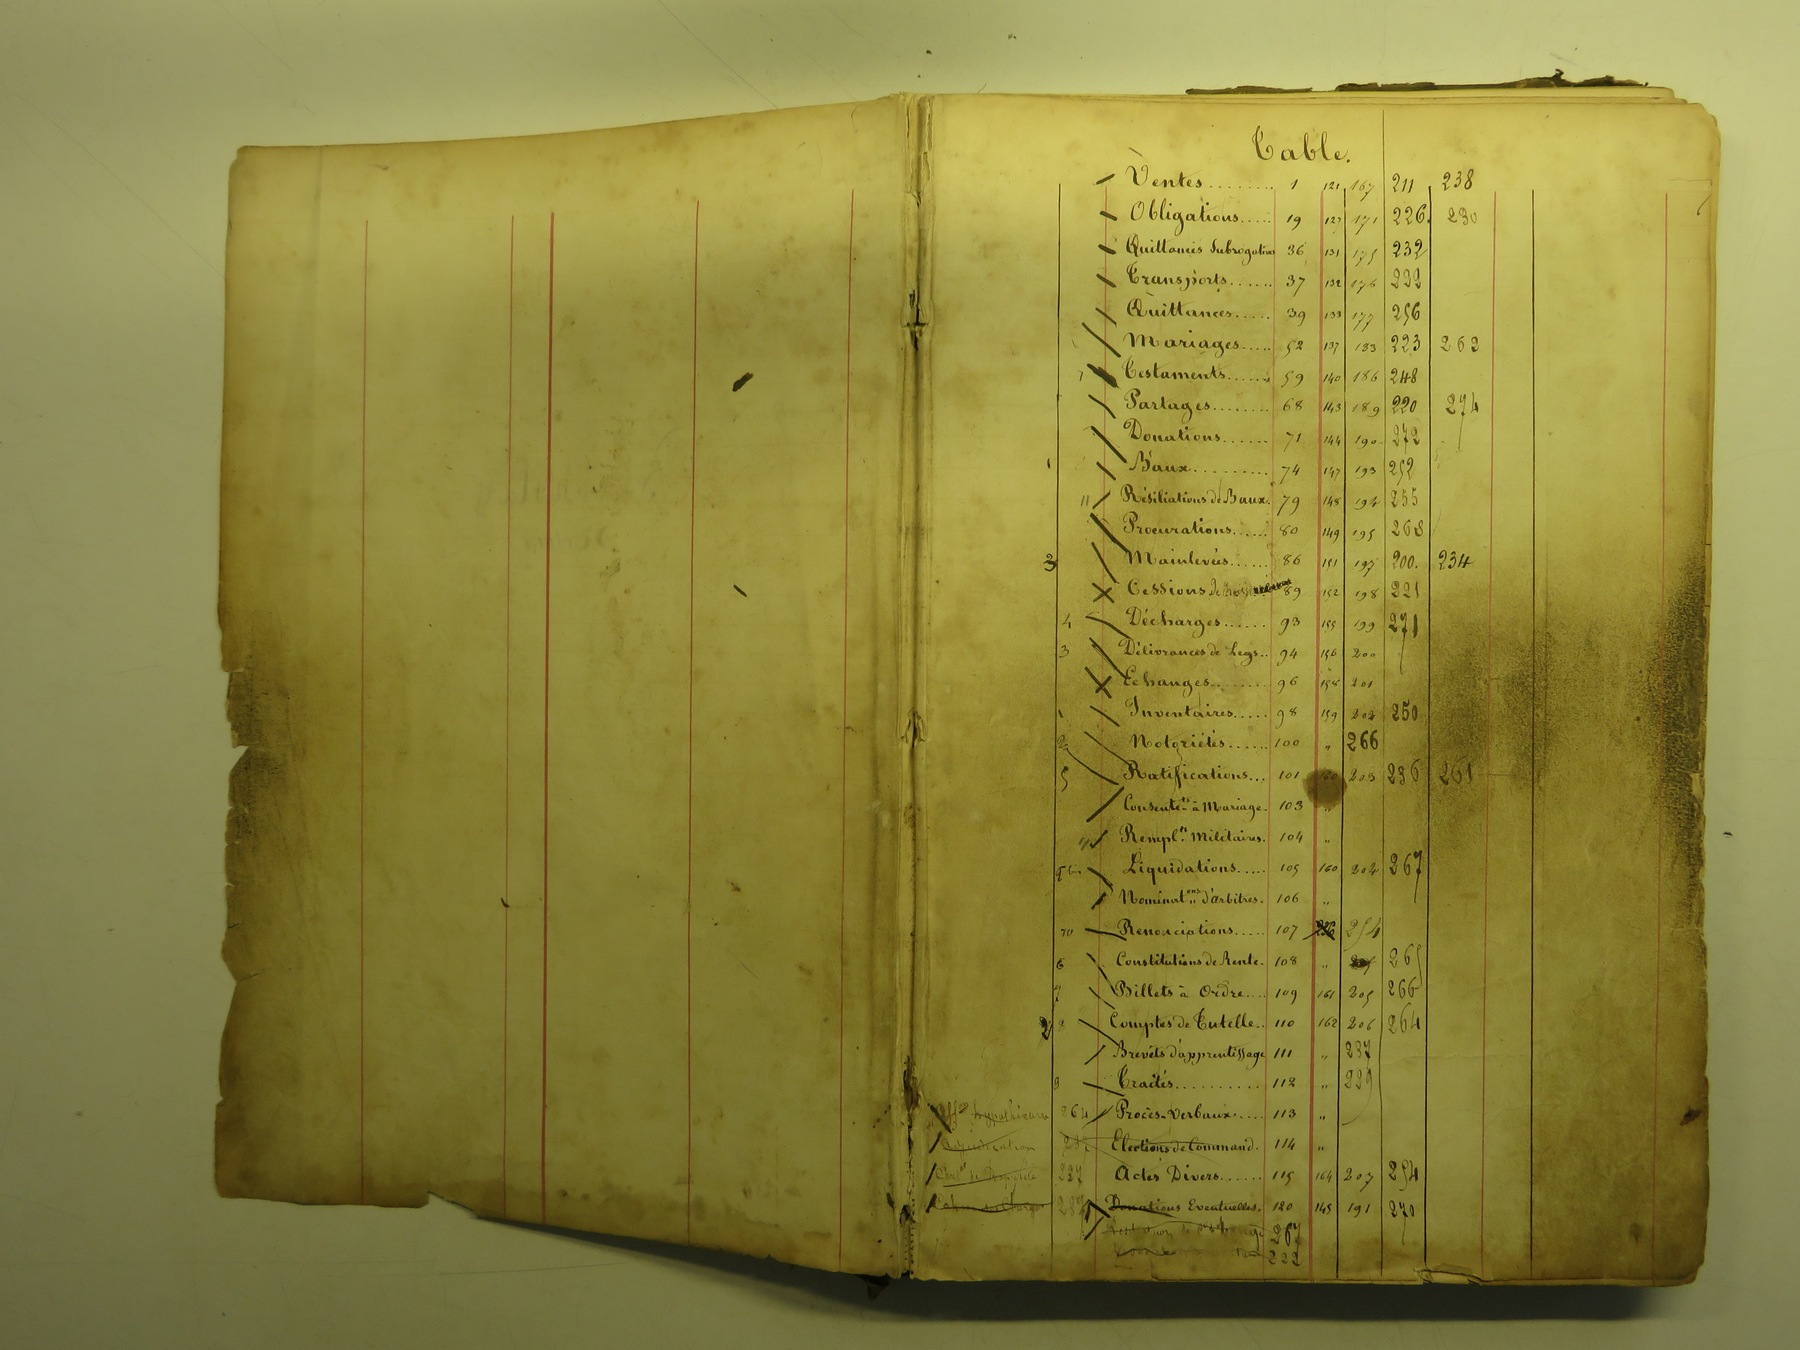 Table.
Ventes........ 1 121 167 211 238
Obligations..... 19 127 171 226. 230
Quittances Subrogatives 36 131 175 232
Transports...... 37 132 176 222
Quittances..... 39 133 177 256
Mariages..... 52 137 183 223 262
Testaments...... 59 140 186 248
Partages........ 68 143 189 220 274
Donations...... 71 144 190 272
1 Baux......... 74 147 193 252
11 Résiliations de Baux. 79 148 194 255
Procurations..... 80 149 195 268
3 Mainlevées...... 86 151 197 200. 234
Cessions de 89 152 198 221
4 Décharges...... 93 155 199 271
3 Délivrances de Legs.. 94 156 200
Echanges........ 96 158 201
1 Inventaires..... 98 159 202 250
2 Notoriétés...... 100 " 266
5 Ratifications... 101 160 203 236 261
Consent.ts à Mariage. 103 "
Rempl.ts Militaires. 104 "
Liquidations..... 105 160 204 267
Nominat.ons d'arbitres. 106 "
10 Renonciations..... 107 254
6 Constitutions de Rente. 108 " 265
7 Billets à Ordre.... 109 161 205 266
2 Comptes de Tutelle.. 110 162 206 264
Brevets d'apprentissage 111 " 237
9 Traités.......... 112 " 229
264 Procès-Verbaux..... 113 "
Elections de Command. 114 "
237 Actes Divers...... 115 164 207 254
Donations Eventuelles. 120 145 191 270
267
222